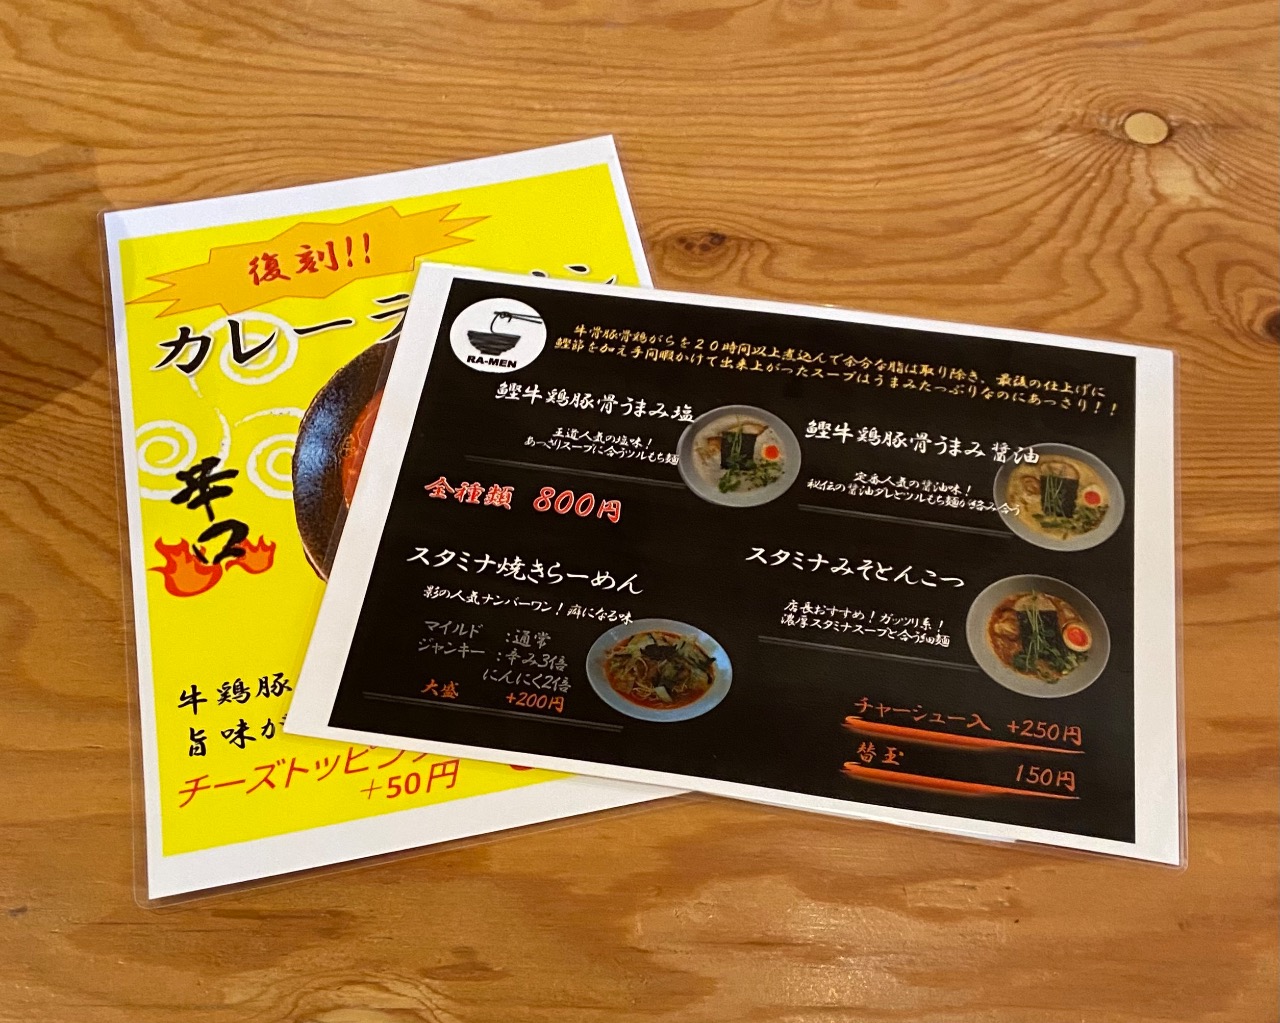 復刻!!
カレーラーメン
辛口
牛鶏豚
旨味が
チーズトッピング
+50円
RA-MEN
牛骨豚骨鶏がらを20時間以上煮込んで余分な脂は取り除き、最後の仕上げに
鰹節を加え手間暇かけて出来上がったスープはうまみたっぷりなのにあっさり!!
鰹牛鶏豚骨うまみ塩
王道人気の塩味!
あっさりスープに合うツルもち麺
鰹牛鶏豚骨うまみ醤油
定番人気の醤油味!
秘伝の醤油ダレとツルもち麺が絡み合う
全種類 800円
スタミナ焼きらーめん
影の人気ナンバーワン!癖になる味
マイルド :通常
ジャンキー :辛み3倍
にんにく2倍
大盛 +200円
スタミナみそとんこつ
店長おすすめ!ガッツリ系!
濃厚スタミナスープと合う細麺
チャーシュー入 +250円
替玉 150円